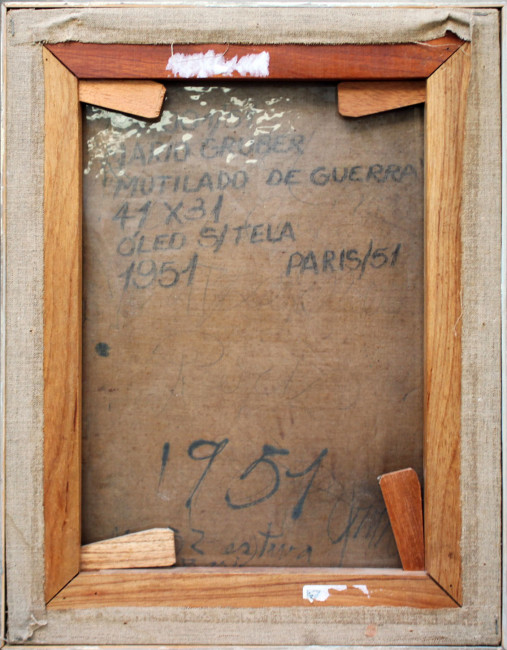 MARIO GRUBER
"MUTILADO DE GUERRA"
41 X 31
ÓLEO S/TELA
1951 PARIS/51
1951